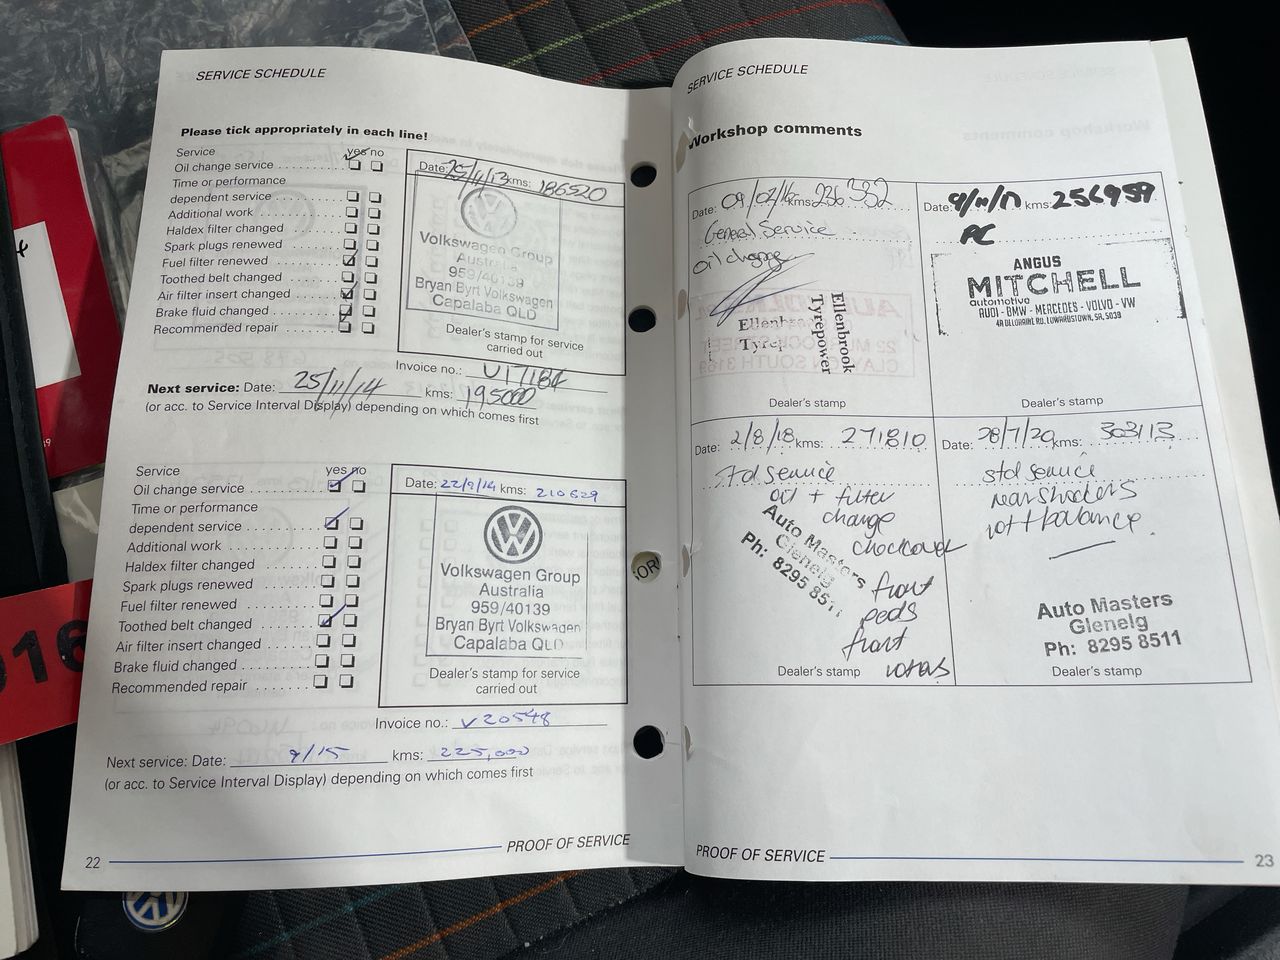 SERVICE SCHEDULE
Please tick appropriately in each line!
Service yes no
Oil change service
Time or performance
dependent service
Additional work
Haldex filter changed
Spark plugs renewed
Fuel filter renewed
Toothed belt changed
Air filter insert changed
Brake fluid changed
Recommended repair
Date: 25/11/13 kms: 186520
Volkswagen Group
Australia
959/40139
Bryan Byrt Volkswagen
Capalaba QLD
Dealer's stamp for service
carried out
Invoice no.: U17184
Next service: Date: 25/11/14 kms: 195000
(or acc. to Service Interval Display) depending on which comes first
Service yes no
Oil change service
Time or performance
dependent service
Additional work
Haldex filter changed
Spark plugs renewed
Fuel filter renewed
Toothed belt changed
Air filter insert changed
Brake fluid changed
Recommended repair
Date: 22/9/14 kms: 210629
Volkswagen Group
Australia
959/40139
Bryan Byrt Volkswagen
Capalaba QLD
Dealer's stamp for service
carried out
Invoice no.: V20548
Next service: Date: 9/15 kms: 225,000
(or acc. to Service Interval Display) depending on which comes first
22 PROOF OF SERVICE
SERVICE SCHEDULE
Workshop comments
Date: 09/02/16 kms: 236332
General Service
oil change
Ellenbrook
Tyrepower
Dealer's stamp
Date: 9/11/17 kms: 256959
PC
ANGUS
MITCHELL
automotive
AUDI - BMW - MERCEDES - VOLVO - VW
4A DELORAINE RD, EDWARDSTOWN, SA, 5039
Dealer's stamp
Date: 2/8/18 kms: 271810
std service
oil + filter
change
Auto Masters
Glenelg
Ph: 8295 8511
front
pads
front
rotors
Dealer's stamp
Date: 28/7/20 kms: 303113
std service
rear shockers
rot + balance
Auto Masters
Glenelg
Ph: 8295 8511
Dealer's stamp
PROOF OF SERVICE 23
016